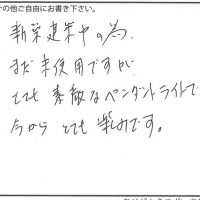 その他ご自由にお書き下さい。
新築建築中の為、
まだ未使用ですが
とても素敵なペンダントライトで
今からとても楽しみです。